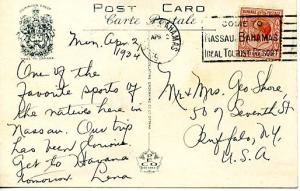 POST CARD
Carte Postale
BAHAMAS
APR
COME TO
NASSAU BAHAMAS
IDEAL TOURIST RESORT
Mon, Apr 2,
1934
One of the
favorite sports of
the natives here in
Nassau. Our trip
has been glorious.
Get to Havana
tomorrow Lena
Mr & Mrs. Geo Shore,
50 of Seventh St
Buffalo, N.Y.
U.S.A